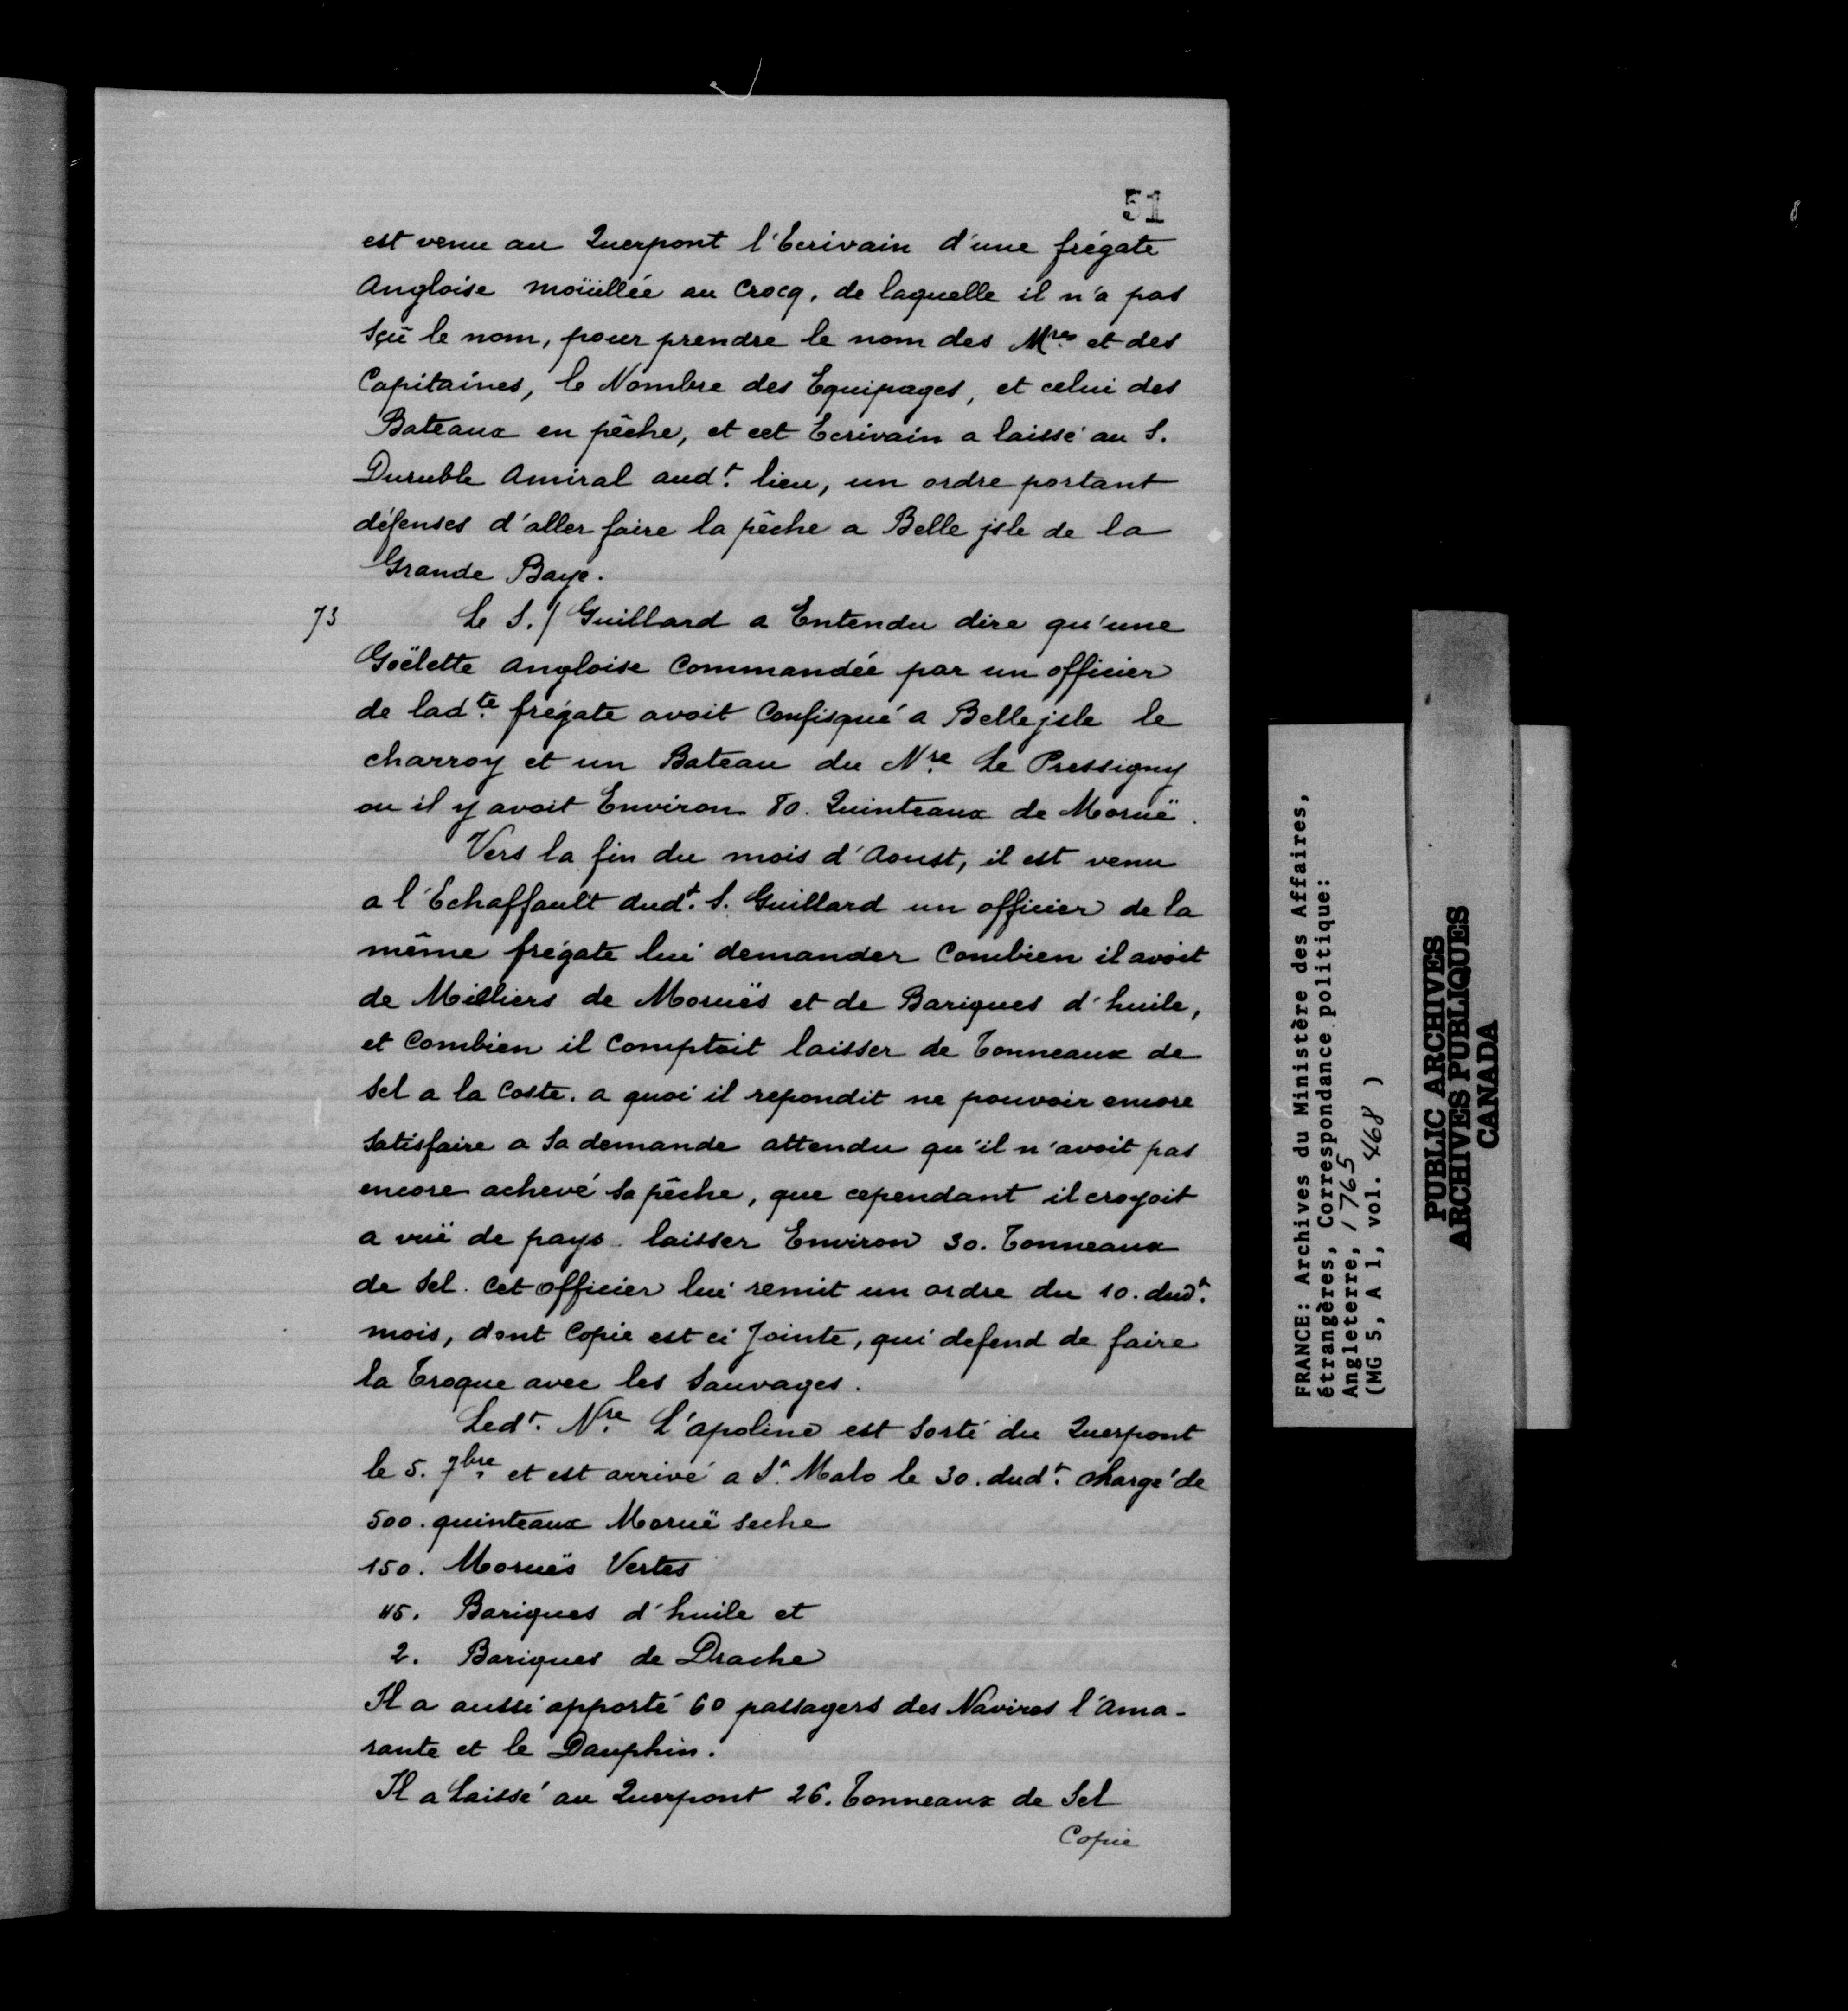 51
est venu au Querpont l'Ecrivain d'une frégate
Angloise moüillée au Crocq, de laquelle il n'a pas
sçû le nom, pour prendre le nom des Mres et des
Capitaines, le Nombre des Equipages, et celui des
Bateaux en pêche, et cet Ecrivain a laissé au S.
Duruble Amiral audt. lieu, un ordre portant
défenses d'aller faire la pêche a Belle jsle de la
Grande Baye.
73
Le S./ Guillard a Entendu dire qu'une
Goëlette Angloise Commandée par un officier
de ladte. frégate avoit Confisqué a Bellejsle le
charroy et un Bateau du Nre. Le Pressigny
ou il y avoit Environ 80. Quinteaux de Moruë.
Vers la fin du mois d'Aoust, il est venu
a l'Echaffault dudt. S. Guillard un officier de la
même frégate lui demander Combien il avoit
de Milliers de Moruës et de Bariques d'huile,
et Combien il Comptoit laisser de Tonneaux de
Sel a la Coste. a quoi il repondit ne pouvoir encore
Satisfaire a Sa demande attendu qu'il n'avoit pas
encore achevé Sa pêche, que cependant il croyoit
a vuë de pays laisser Environ 30. Tonneaux
de Sel. Cet officier lui remit un ordre du 10. dudt.
mois, dont Copie est ci Jointe, qui defend de faire
la Troque avec les Sauvages.
Ledt. Nre. L'apoline est Sorti du Querpont
le 5. 7bre. et est arrivé a St. Malo le 30. dudt. Chargé de
500. quinteaux Moruë Seche
150. Moruës Vertes
45. Bariques d'huile et
2. Bariques de Drache
Il a aussi apporté 60 passagers des Navires l'Ama-
rante et le Dauphin.
Il a laissé au Querpont 26. Tonneaux de Sel
Copie
FRANCE: Archives du Ministère des Affaires,
étrangères, Correspondance politique:
Angleterre, 1765
(MG 5, A 1, vol. 468 )
PUBLIC ARCHIVES
ARCHIVES PUBLIQUES
CANADA